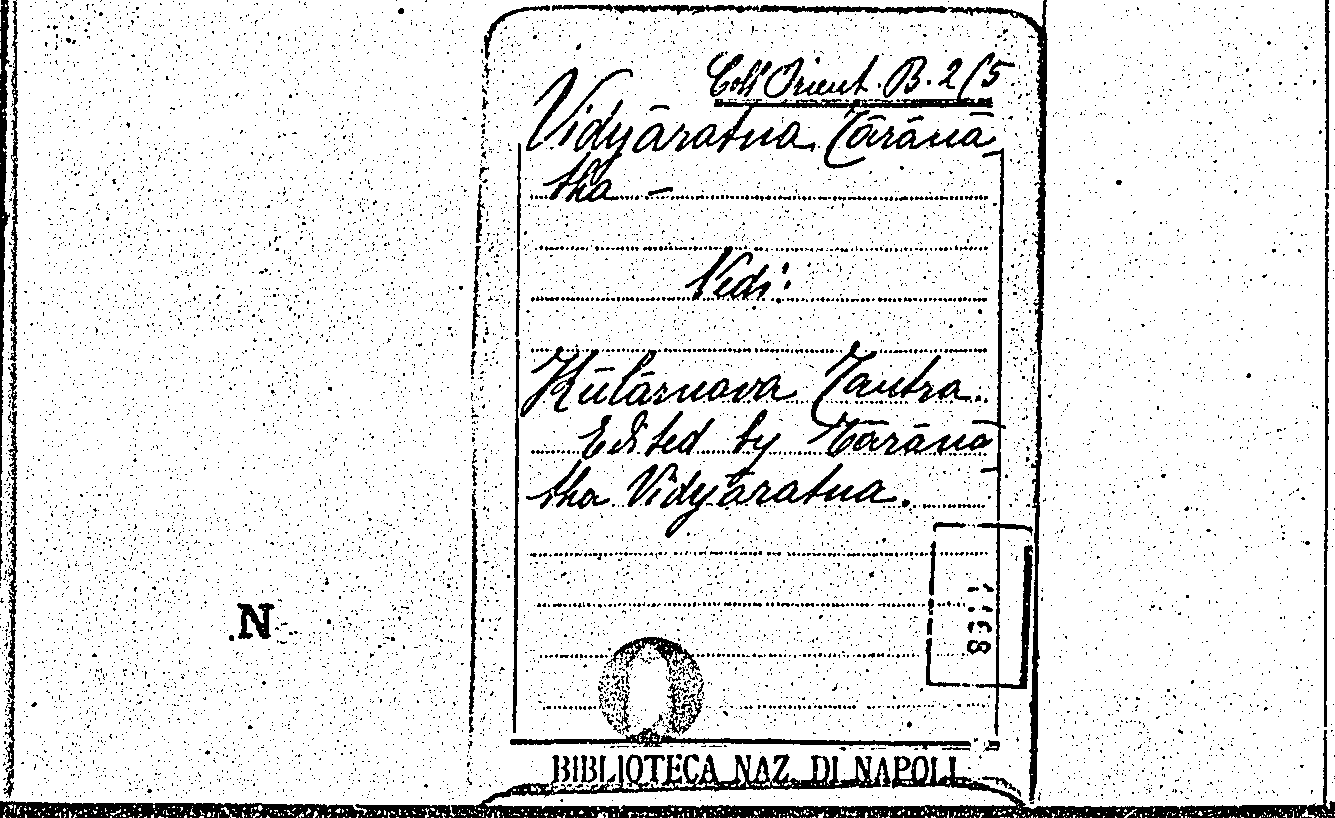 Coll. Orient. B. 2/5
Vidyāratna Tārānā
tha –
Vedi:
Kūlārnava Tantra.
Edited by Tārānā
tha Vidyāratna.
N
BIBLIOTECA NAZ. DI NAPOLI